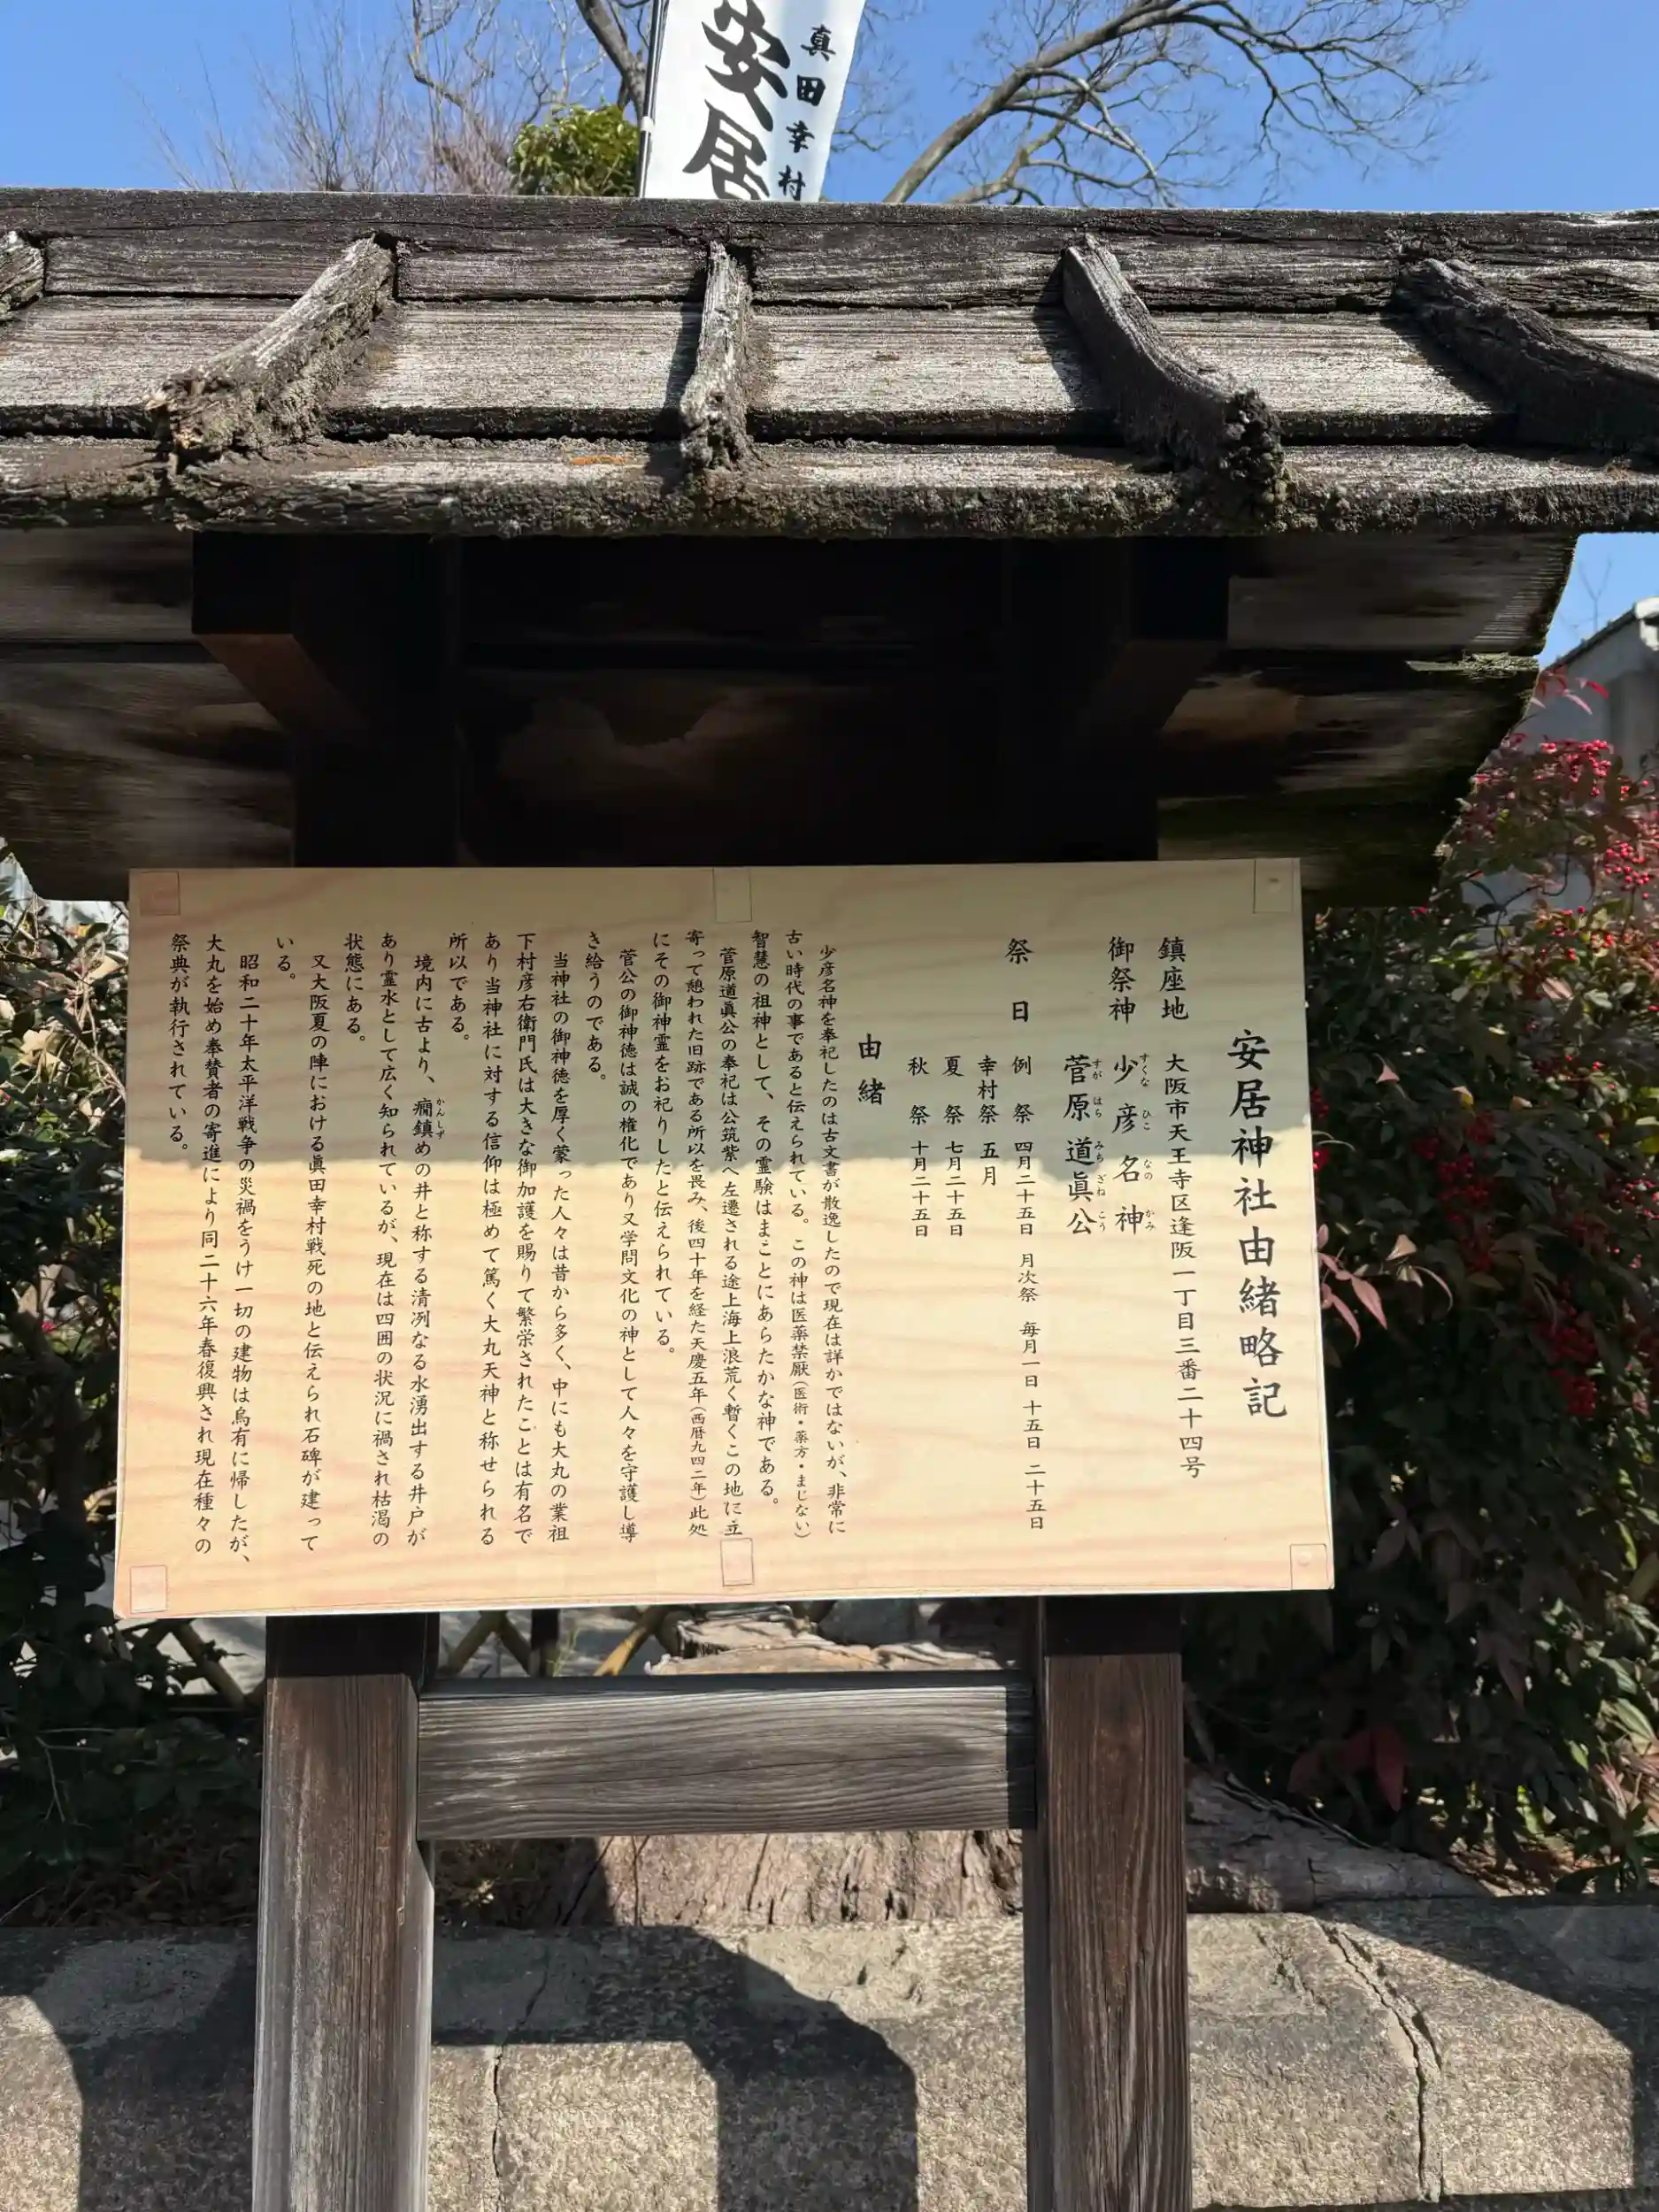 真田幸村
安居
安居神社由緒略記
鎮座地 大阪市天王寺区逢阪一丁目三番二十四号
御祭神 少彦名神
すくな ひこ なの かみ
菅原道眞公
すが はら みち ざね こう
祭 日 例 祭 四月二十五日 月次祭 毎月一日 十五日 二十五日
幸村祭 五月
夏 祭 七月二十五日
秋 祭 十月二十五日
由緒
少彦名神を奉祀したのは古文書が散逸したので現在は詳かではないが、非常に
古い時代の事であると伝えられている。この神は医薬禁厭(医術・薬方・まじない)
智慧の祖神として、その霊験はまことにあらたかな神である。
菅原道眞公の奉祀は公筑紫へ左遷される途上海上浪荒く暫くこの地に立
寄って憩われた旧跡である所以を畏み、後四十年を経た天慶五年(西暦九四二年)此処
にその御神霊をお祀りしたと伝えられている。
菅公の御神徳は誠の権化であり又学問文化の神として人々を守護し導
き給うのである。
当神社の御神徳を厚く蒙った人々は昔から多く、中にも大丸の業祖
下村彦右衛門氏は大きな御加護を賜りて繁栄されたことは有名で
あり当神社に対する信仰は極めて篤く大丸天神と称せられる
所以である。
境内に古より、癇鎮めの井と称する清冽なる水湧出する井戸が
かんしず
あり霊水として広く知られているが、現在は四囲の状況に禍され枯渇の
状態にある。
又大阪夏の陣における眞田幸村戦死の地と伝えられ石碑が建って
いる。
昭和二十年太平洋戦争の災禍をうけ一切の建物は烏有に帰したが、
大丸を始め奉賛者の寄進により同二十六年春復興され現在種々の
祭典が執行されている。